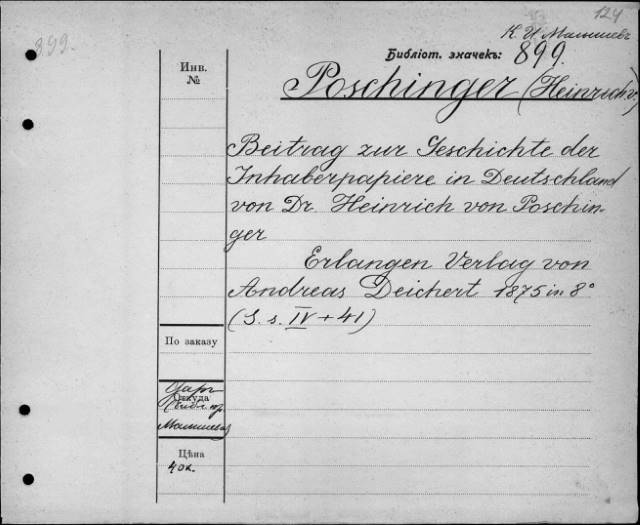 124
899.
К. И. Малышевъ
Библіот. значекъ: 899.
Инв.
№
Poschinger (Heinrich v)
Beitrag zur Geschichte der
Inhaberpapiere in Deutschland
von Dr. Heinrich von Poschin-
ger
Erlangen Verlag von
Andreas Deichert 1875 in 8°
(S. s. IV + 41)
По заказу
Откуда
Малышева
Цѣна
40к.